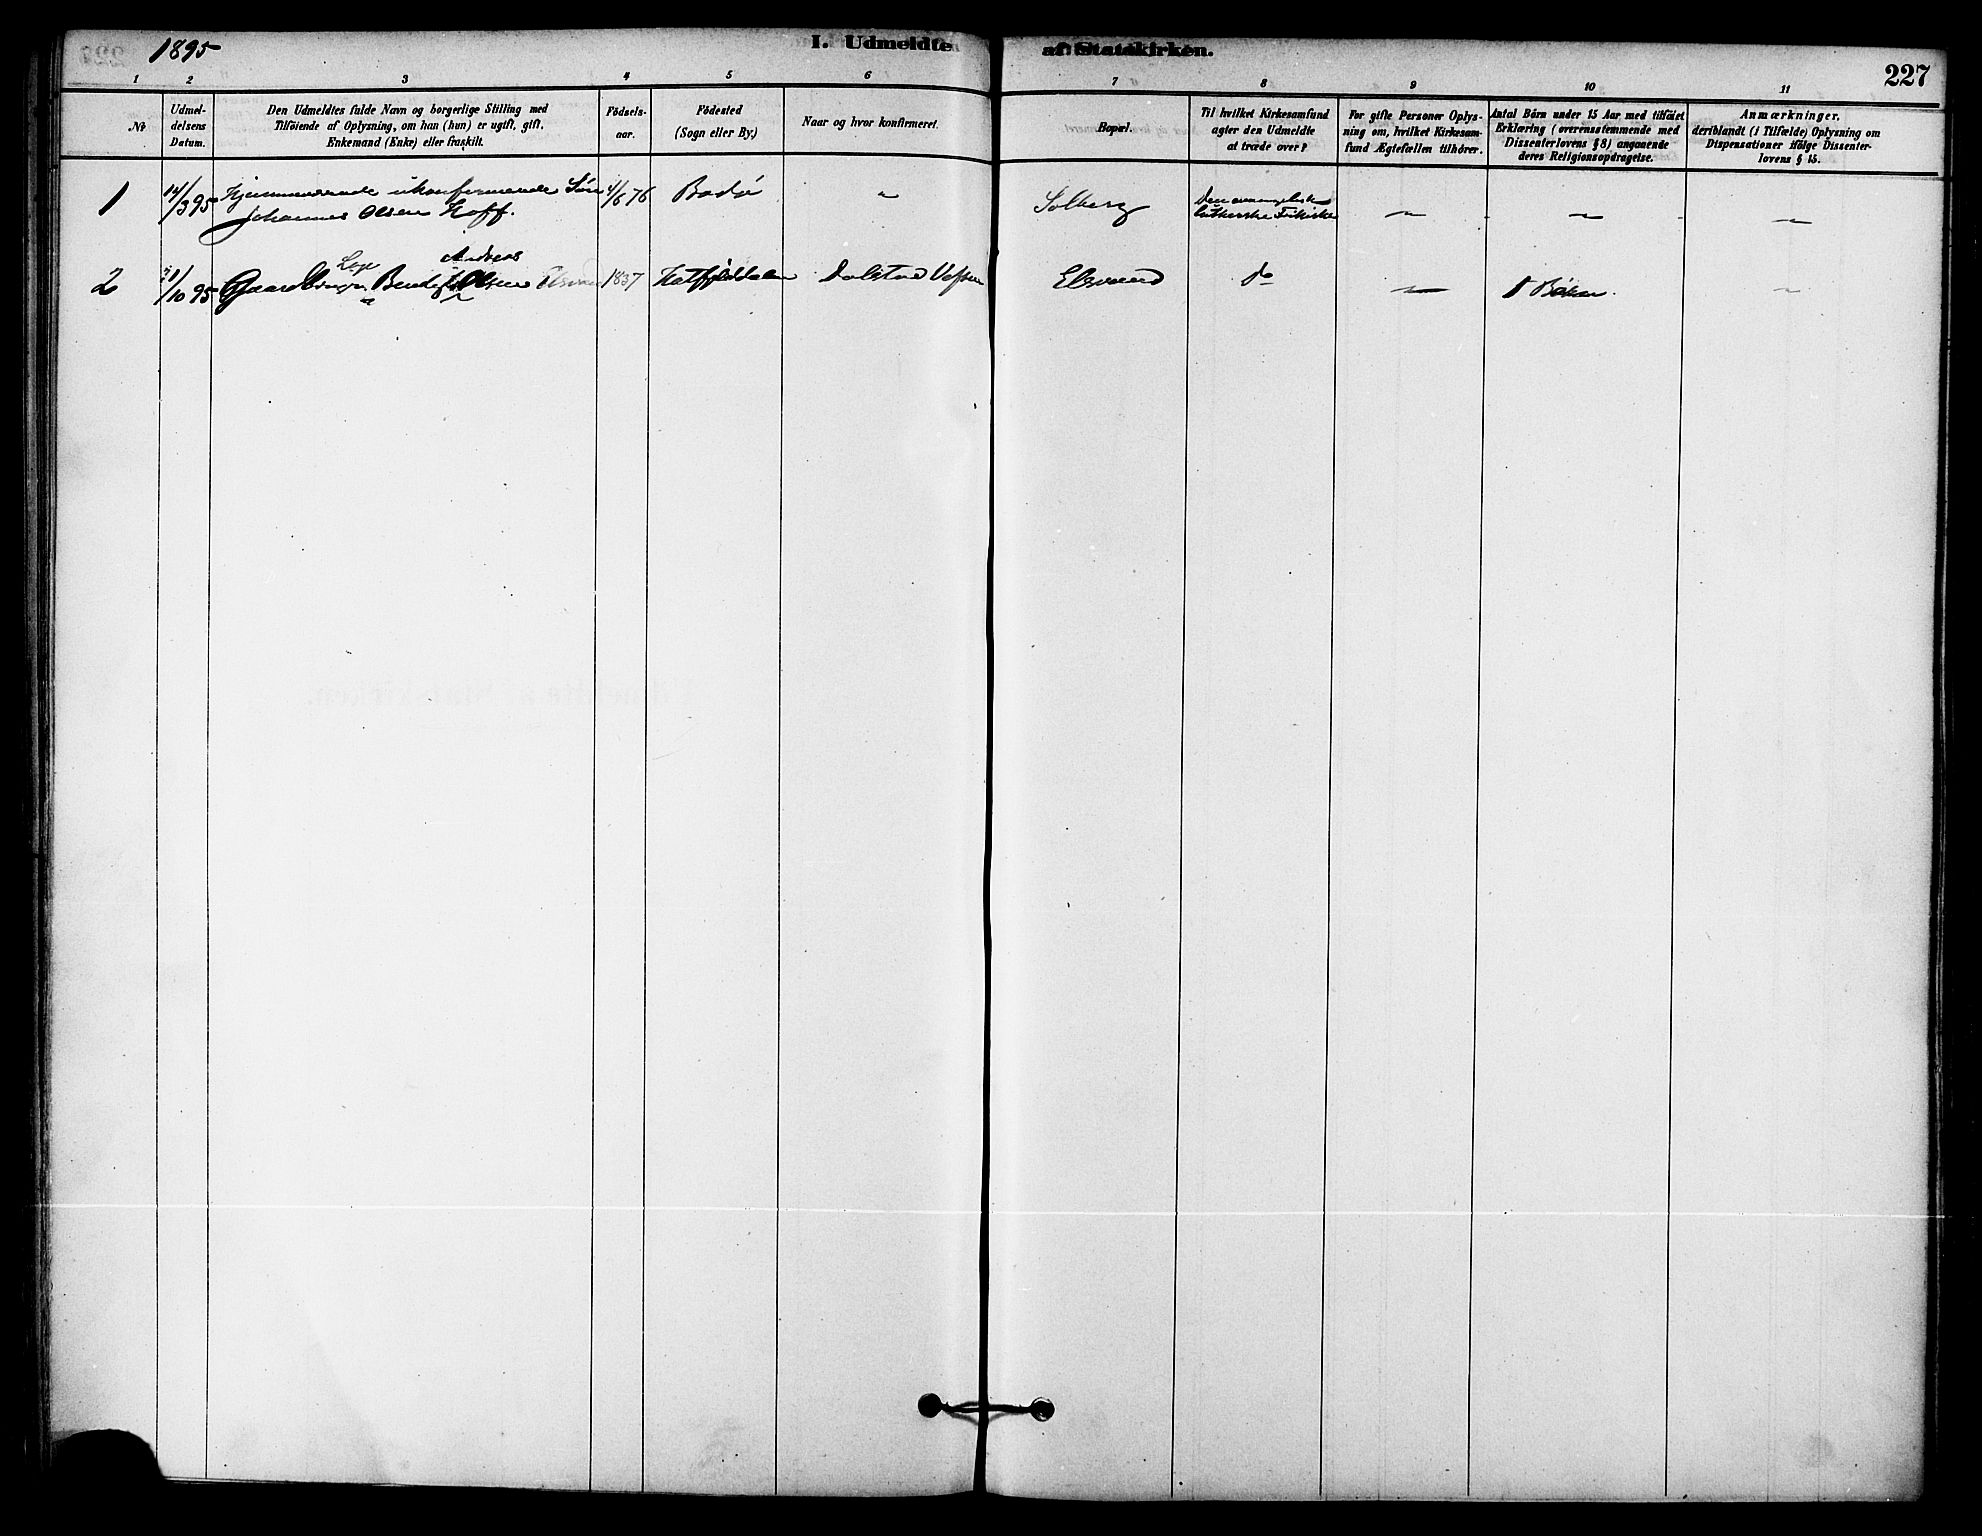 1895
I. Udmeldte af Statskirken.
227
1 2 3 4 5 6 7 8 9 10 11
No
Udmel-
delsens
Datum.
Den Udmeldtes fulde Navn og borgerlige Stilling med
Tilføiende af Oplysning, om han (hun) er ugift, gift,
Enkemand (Enke) eller fraskilt.
Fødsels-
aar.
Fødested
(Sogn eller By.)
Naar og hvor konfirmeret.
Bopæl.
Til hvilket Kirkesamfund
agter den Udmeldte
at træde over?
For gifte Personer Oplys-
ning om, hvilket Kirkesam-
fund Ægtefællen tilhører.
Antal Børn under 15 Aar med tilføiet
Erklæring (overensstemmende med
Dissenterlovens § 8) angaaende
deres Religionsopdragelse.
Anmærkninger,
deriblandt (i Tilfælde) Oplysning om
Dispensationer ifølge Dissenter-
lovens § 15.
1 14/3 95 Hjemmeværende ukonfirmerede Søn 4/6 76 Bodø " Solberg Den evangelisk
Johannes Olsen Hoff. lutherske Frikirke
Andreas
2 /10 95 Bendigt Olsen 1837 Hatfjelddalen Dolstad Vefsen Elsvand do Børn.